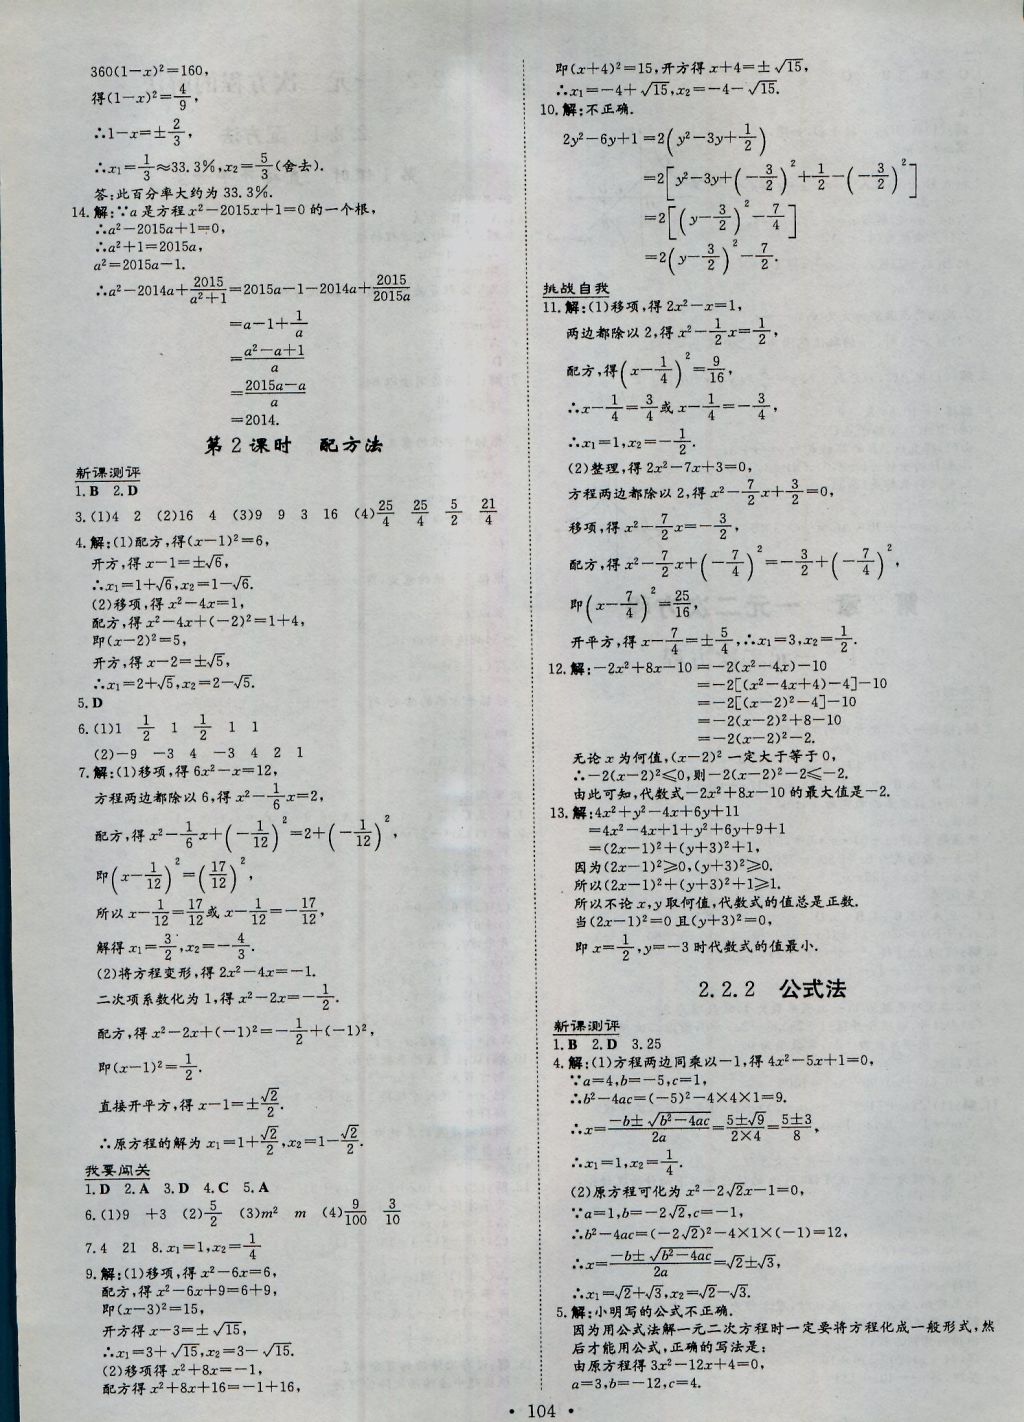 360(1-x)²=160,
得(1-x)²=4/9,
∴1-x=±2/3,
∴x₁=1/3≈33.3%,x₂=5/3(舍去).
答:此百分率大约为 33.3%.
14.解:∵a 是方程 x²-2015x+1=0 的一个根,
∴a²-2015a+1=0,
∴a²+1=2015a,
a²=2015a-1.
∴a²-2014a+2015/(a²+1)=2015a-1-2014a+2015/2015a
=a-1+1/a
=(a²-a+1)/a
=(2015a-a)/a
=2014.
第 2 课时 配方法
新课测评
1.B 2.D
3.(1)4 2 (2)16 4 (3)9 9 3 16 (4)25/4 25/4 5/2 21/4
4.解:(1)配方,得(x-1)²=6,
开方,得 x-1=±√6,
∴x₁=1+√6,x₂=1-√6.
(2)移项,得 x²-4x=1,
配方,得 x²-4x+(-2)²=1+4,
即(x-2)²=5,
开方,得 x-2=±√5,
∴x₁=2+√5,x₂=2-√5.
5.D
6.(1)1 1/2 1 1/2 1 1
(2)-9 -3 4 -3 4 2 1
7.解:(1)移项,得 6x²-x=12,
方程两边都除以 6,得 x²-1/6x=2,
配方,得 x²-1/6x+(-1/12)²=2+(-1/12)²,
即(x-1/12)²=(17/12)²,
所以 x-1/12=17/12或 x-1/12=-17/12,
解得 x₁=3/2,x₂=-4/3.
(2)将方程变形,得 2x²-4x=-1.
二次项系数化为 1,得 x²-2x=-1/2.
配方,得 x²-2x+(-1)²=-1/2+(-1)²,
即(x-1)²=1/2.
直接开平方,得 x-1=±√2/2.
∴原方程的解为 x₁=1+√2/2,x₂=1-√2/2.
我要闯关
1.D 2.A 3.D 4.C 5.A
6.(1)9 +3 (2)5/2 (3)m² m (4)9/100 3/10
7.4 21 8.x₁=1,x₂=1/4
9.解:(1)移项,得 x²-6x=6,
配方,得 x²-6x+9=6+9,
即(x-3)²=15,
开方得 x-3=±√15,
∴x₁=3+√15,x₂=3-√15.
(2)移项得 x²+8x=-1,
配方得 x²+8x+16=-1+16,
即(x+4)²=15,开方得 x+4=±√15,
∴x₁=-4+√15,x₂=-4-√15.
10.解:不正确.
2y²-6y+1=2(y²-3y+1/2)
=2[y²-3y+(-3/2)²+1/2-(-3/2)²]
=2[(y-3/2)²-7/4]
=2(y-3/2)²-7/2.
挑战自我
11.解:(1)移项,得 2x²-x=1,
两边都除以 2,得 x²-1/2x=1/2,
配方,得(x-1/4)²=9/16,
∴x-1/4=3/4或 x-1/4=-3/4,
∴x₁=1,x₂=-1/2.
(2)整理,得 2x²-7x+3=0,
方程两边都除以 2,得 x²-7/2x+3/2=0,
移项,得 x²-7/2x=-3/2,
配方,得 x²-7/2x+(-7/4)²=-3/2+(-7/4)²,
即(x-7/4)²=25/16,
开平方,得 x-7/4=±5/4,∴x₁=3,x₂=1/2.
12.解:-2x²+8x-10=-2(x²-4x)-10
=-2[(x²-4x+4)-4]-10
=-2[(x-2)²-4]-10
=-2(x-2)²+8-10
=-2(x-2)²-2.
无论 x 为何值,(x-2)² 一定大于等于 0,
∴-2(x-2)²≤0,则-2(x-2)²-2≤-2.
由此可知,代数式-2x²+8x-10 的最大值是-2.
13.解:4x²+y²-4x+6y+11
=4x²-4x+1+y²+6y+9+1
=(2x-1)²+(y+3)²+1,
因为(2x-1)²≥0,(y+3)²≥0.
所以(2x-1)²+(y+3)²+1≥1.
所以不论 x,y 取何值,代数式的值总是正数.
当(2x-1)²=0 且(y+3)²=0,
即 x=1/2,y=-3 时代数式的值最小.
2.2.2 公式法
新课测评
1.B 2.D 3.25
4.解:(1)方程两边同乘以-1,得 4x²-5x+1=0,
∵a=4,b=-5,c=1,
∴b²-4ac=(-5)²-4×4×1=9.
∴x=(-b±√(b²-4ac))/2a=(5±√9)/(2×4)=(5±3)/8,
∴x₁=1,x₂=1/4.
(2)原方程可化为 x²-2√2x-1=0,
∵a=1,b=-2√2,c=-1,
∴b²-4ac=(-2√2)²-4×1×(-1)=12,
∴x=(-b±√(b²-4ac))/2a=√2±√3,
∴x₁=√2+√3,x₂=√2-√3.
5.解:小明写的公式不正确.
因为用公式法解一元二次方程时一定要将方程化成一般形式,然
后才能用公式,正确的写法是:
由原方程得 3x²-12x+4=0,
a=3,b=-12,c=4.
• 104 •